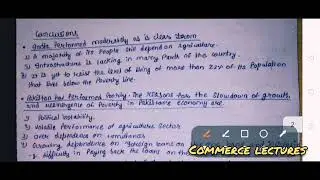 Conclusions
India Performed moderately as is clear from
1) A majority of its People still depend on Agriculture.
2) Infrastructure is lacking in many Parts of the country.
3) It is yet to raise the level of living of more than 22% of its Population
that live below the Poverty line.
Pakistan has Performed Poorly. The Reasons for the Slowdown of growth
and Reemergence of Poverty in Pakistan's economy are
1) Political Instability.
2) Volatile Performance of agriculture sector
3) Over dependence on remittances
4) Growing dependence on foreign loans on
difficulty in Paying back the loans on the
COMMERCE LECTURES